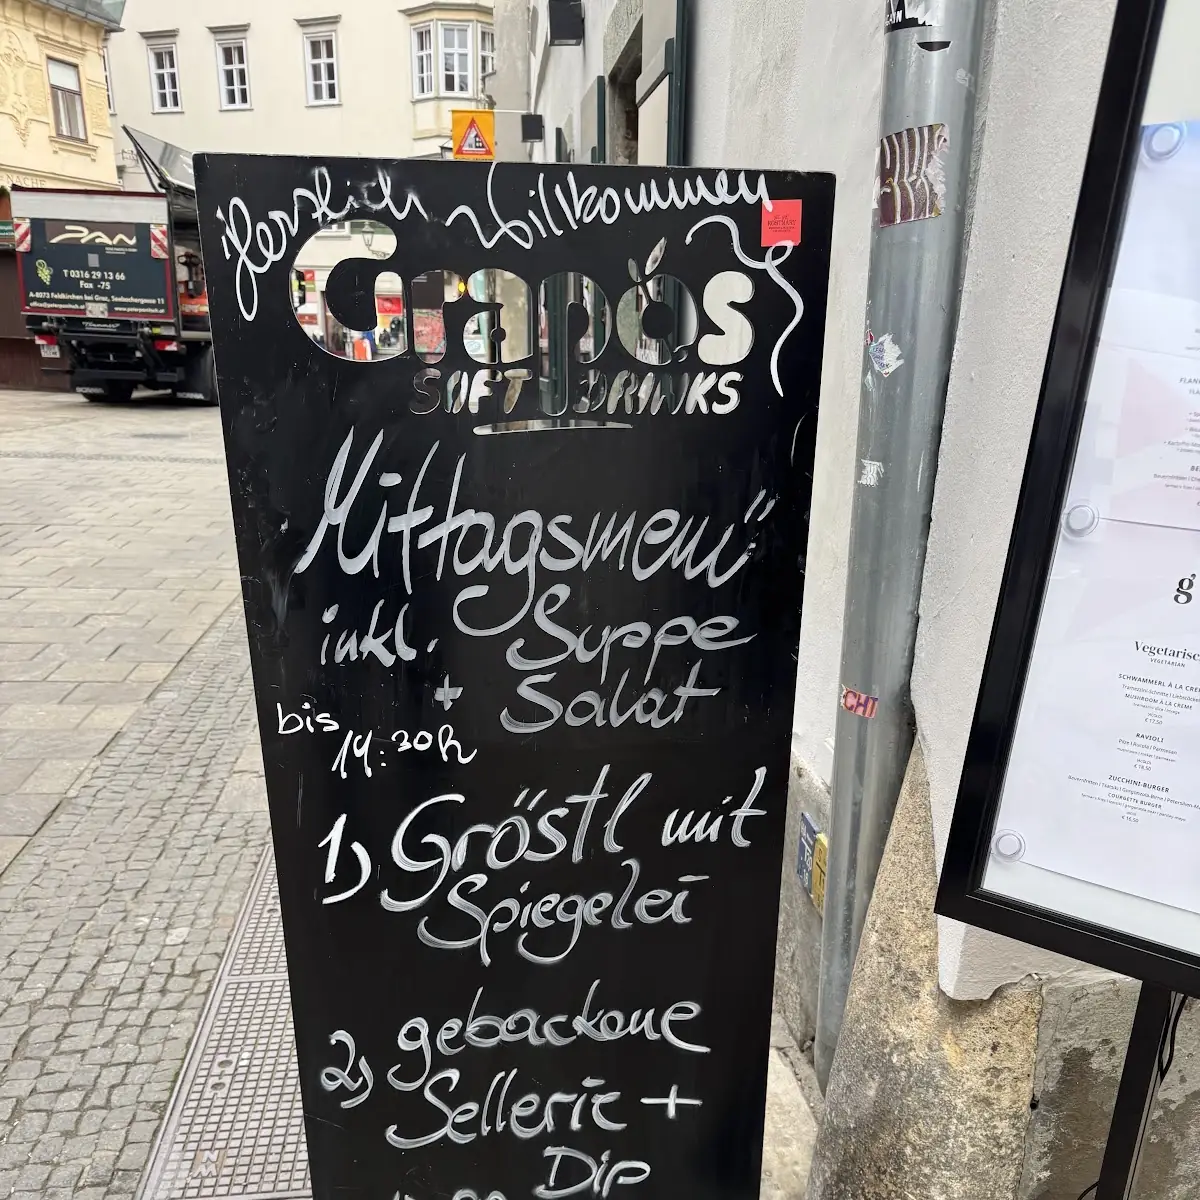 Herzlich Willkommen
Grapos
SOFT DRINKS
Mittagsmenü
inkl. Suppe
+ Salat
bis
14:30h
1) Gröstl mit
Spiegelei
2) gebackene
Sellerie +
Dip
PAN
T 0316 29 13 66
Fax -75
A-8073 Feldkirchen bei Graz, Seebachergasse 11
CHT
g
Vegetarisc
VEGETARIAN
SCHWAMMERL À LA CRE
MUSHROOM À LA CREME
€ 17,50
RAVIOLI
Pilze | Rucola | Parmesan
€ 18,50
ZUCCHINI-BURGER
COURGETTE BURGER
€ 16,50